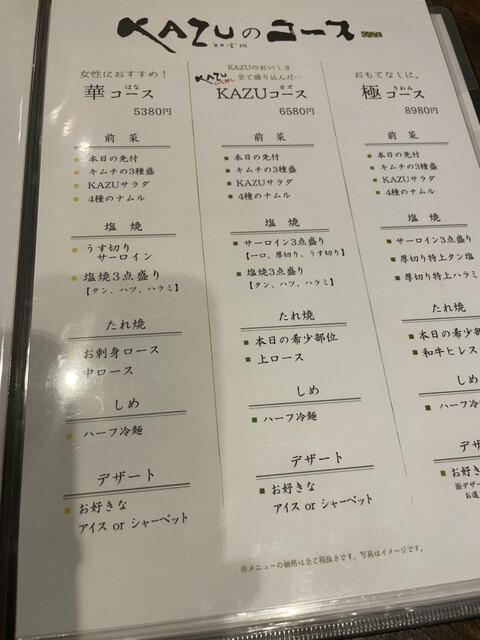 KAZUのコース
女性におすすめ！
華コース
はな
5380円
前菜
本日の先付
キムチの3種盛
KAZUサラダ
4種のナムル
塩焼
うす切り
サーロイン
塩焼3点盛り
【タン、ハツ、ハラミ】
たれ焼
お刺身ロース
中ロース
しめ
ハーフ冷麺
デザート
お好きな
アイス or シャーベット
KAZUのおいしさ
全て盛り込んだ…
KAZU
KAZUコース
カズ
6580円
前菜
本日の先付
キムチの3種盛
KAZUサラダ
4種のナムル
塩焼
サーロイン3点盛り
【一口、厚切り、うす切り】
塩焼3点盛り
【タン、ハツ、ハラミ】
たれ焼
本日の希少部位
上ロース
しめ
ハーフ冷麺
デザート
お好きな
アイス or シャーベット
おもてなしに。
極コース
きわみ
8980円
前菜
本日の先付
キムチの3種盛
KAZUサラダ
4種のナムル
塩焼
サーロイン3点盛り
厚切り特上タン塩
厚切り特上ハラミ
たれ焼
本日の希少部
和牛ヒレス
しめ
ハーフ冷
デザ
お好き
※デザー
お選
※メニューの価格は全て税抜きです。写真はイメージです。